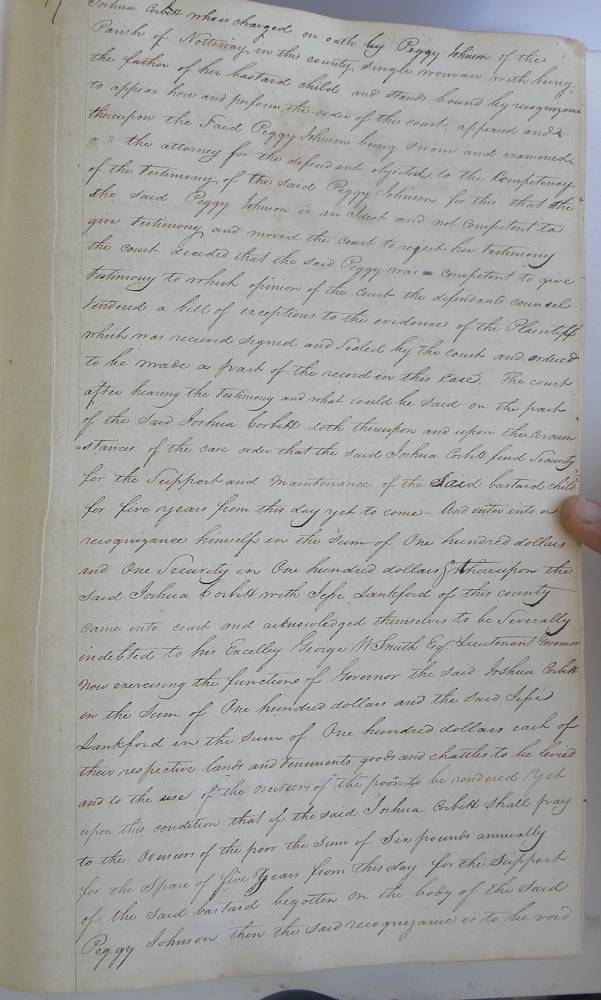 17
Joshua Corbett who is charged on oath by Peggy Johnson of the
Parish of Nottoway in this county, single woman with being
the father of her bastard child and stands bound by recognizance
to appear here and perform the order of this court, appeared and &
thereupon the Said Peggy Johnson being sworn and examined
the attorney for the defendant objected to the Competency
of the testimony of the Said Peggy Johnson for this that the
the said Peggy Johnson is an Ideot and not competent to
give testimony and moved the court to reject her testimony
the court decided that the said Peggy was competent to give
testimony to which opinion of the Court the defendants councel
tendered a bill of exceptions to the evidence of the Plaintiff
which was received signed and Sealed by the court and ordered
to be made a part of the record in this case. The court
after hearing the testimony and what could be said on the part
of the Said Joshua Corbett doth thereupon and upon the circum
stances of the case order that the said Joshua Corbett find Security
for the Support and Maintenance of the Said bastard child
for five years from this day yet to come – And enter into a
recognizance himself in the Sum of One hundred dollars
and One Security in One hundred dollars, thereupon the
Said Joshua Corbett with Jesse Lankford of this county
came into court and acknowledged themselves to be Severally
indebted to his Excelley George W Smith Esq Lieutenant Governor
Now exercising the functions of Governor the said Joshua Corbett
in the Sum of One hundred dollars and the said Jesse
Lankford in the Sum of One hundred dollars each of
their respective lands and tenements goods and chattles to be levied
and to the use of the overseers of the poor to be rendered yet
upon this condition that if the said Joshua Corbett Shall pay
to the Overseers of the poor the Sum of Six pounds annually
for the Space of five Years from this day for the Support
of the Said bastard begotten on the body of the Said
Peggy Johnson then the Said recognizance is to be void